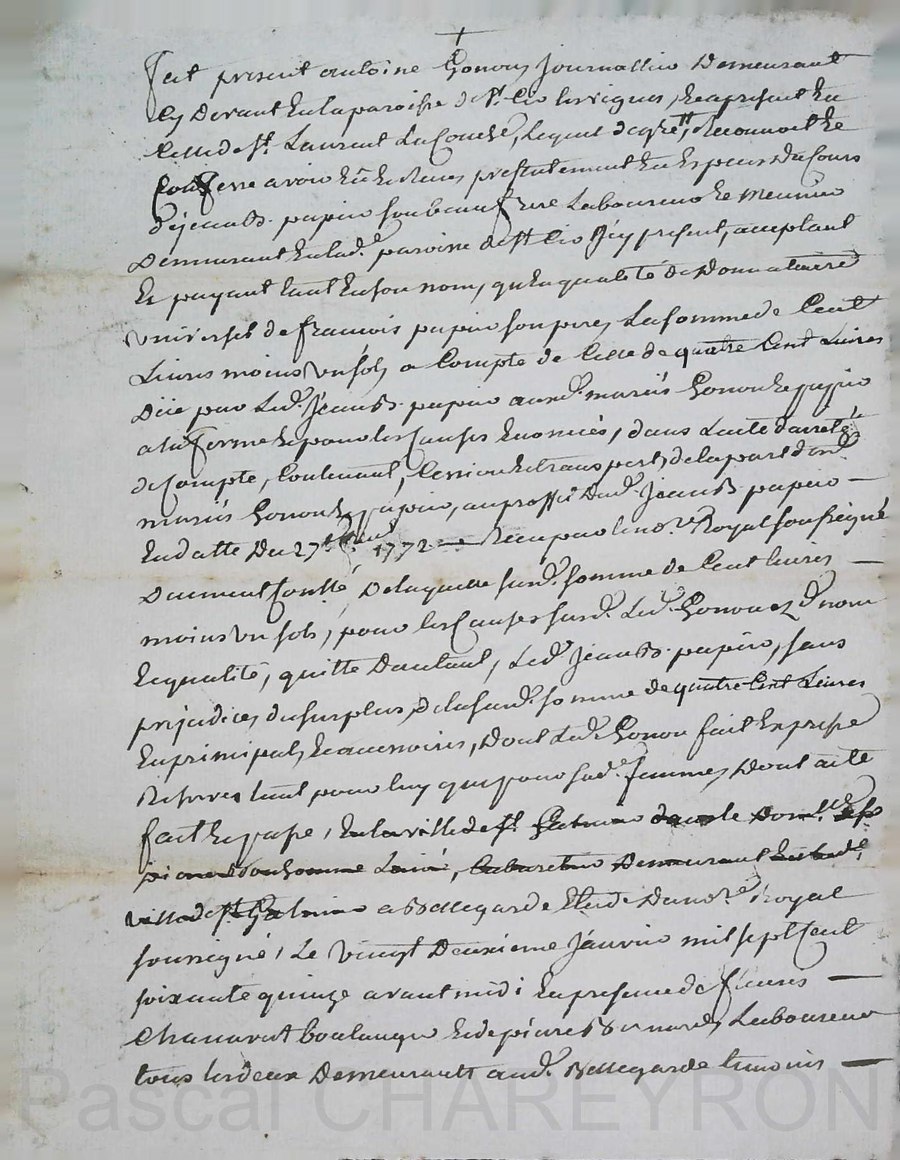 +
fut present antoine Gonon journallier Demeurant
cy Devant En la paroisse de St. Cir les vignes, Et apresent En
Celle de St. Laurent La Conche, Lequel de gré Reconnoit Et
Confesse avoir Eü Et Receu presentement En Especes du Cours
de jean Bte. papier son beaufrere Laboureur Et Meunier
Demeurant En lad.e paroisse de St. Cir Icy present, acceptant
Et payant tant En son nom, qu'En qualité de Donnataire
Universel de francois papier son pere, La somme de Cent
Livres moins un sols a Compte de Celle de quatre Cent Livres
Düe par Led. Jean B. papier aux d. mariés Gonon Et papier
a la forme Et pour les Causes Enoncées, dans L'acte d'arreté
de Compte, Contenant, Cession Et transport, de la part desd.
mariés Gonon Et papier, au proffit Dud. Jean B. papier —
En datte Du 27 1772 — Receu par le no.re Royal soussigné
Duement Controllé, De laquelle susd. somme de Cent livres —
moins un sols, pour les Causes susd. Led. Gonon Ez d. nom
Et qualité, quitte D'autant, Led. Jean B. papier, sans
prejudice, du surplus, De la susd. somme de quatre Cent Livres
En principal, Et accessoires, Dont Led. Gonon fait Expresse
Reserve tant pour luy que pour sad.e femme, Dont acte
fait Et passé, En la ville de St. Galmier dans le Domlle.
pierre bonhomme L'ainé, Cabaretier Demeurant En lad.e
ville de St. Galmier a Bellegarde Etude Du no.re Royal
soussigné, Le Vingt Deuxieme Janvier mil sept Cent
soixante quinze avant midi En presence de —
Chanavat boulanger Et de pierre Bernard, Laboureur
tous les deux Demeurants aud. Bellegarde temoins —
Pascal CHAREYRON